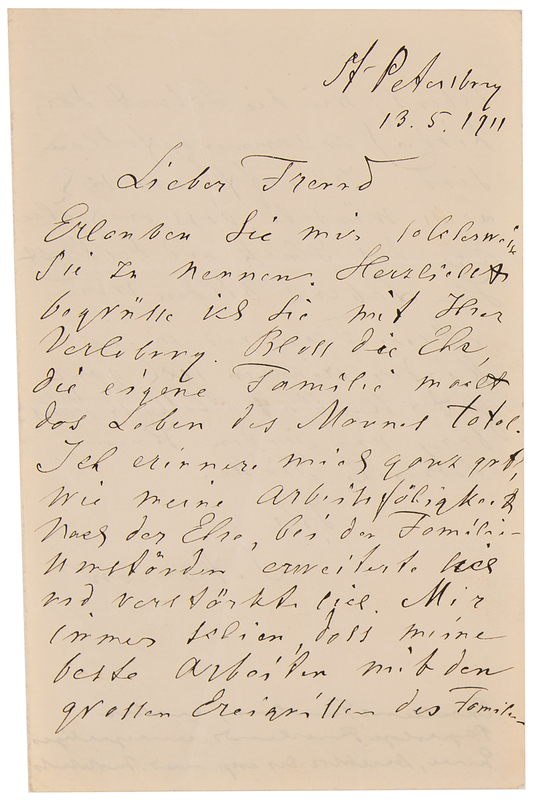 St Petersburg
13. 5. 1911
Lieber Freund
Erlauben Sie mir solcherweise
Sie zu nennen. Herzlichst
begrüsse ich Sie mit Ihrer
Verlobung. Bloss die Ehe,
die eigene Familie macht
das Leben des Mannes total.
Ich erinnere mich ganz gut,
wie meine Arbeitsfähigkeit
nach der Ehe, bei den Familie-
umständen erweiterte sich
und verstärkte sich. Mir
immer schien, dass meine
beste Arbeiten mit den
grossen Ereignissen des Familien-